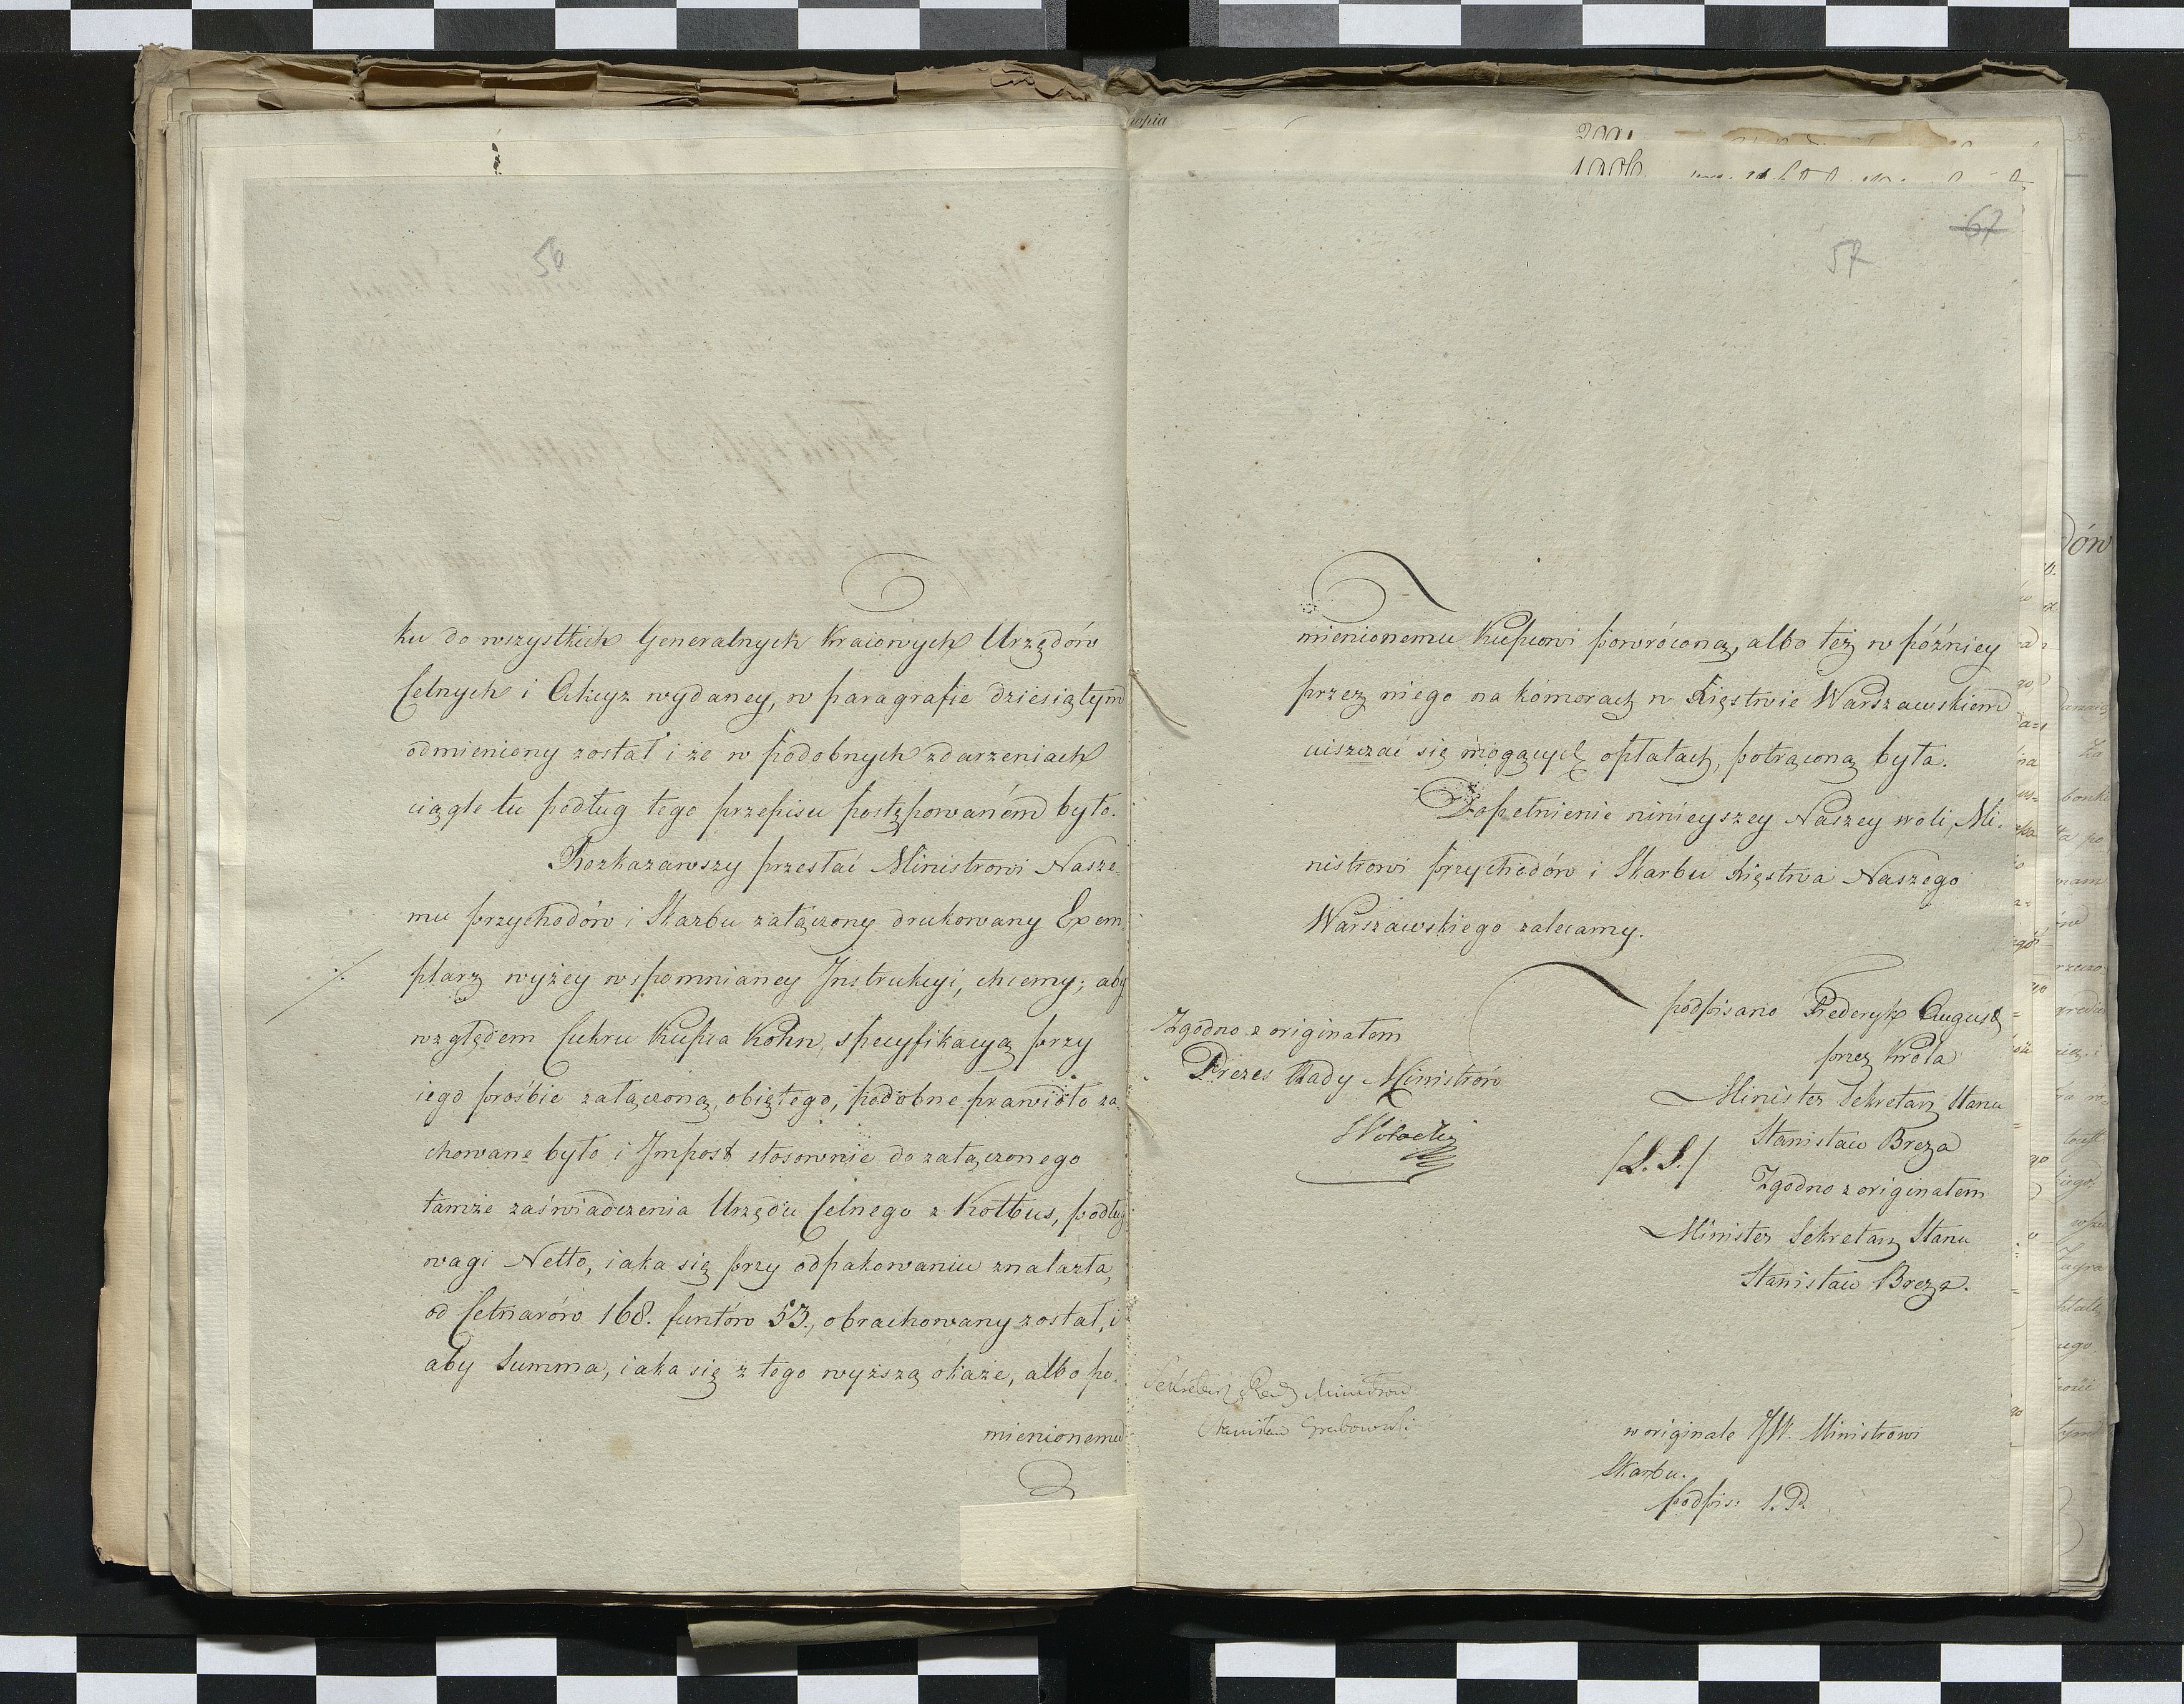 56
ku do wszystkich Generalnych Kraiowych Urzędów
Celnych i Akcyz wydaney, w paragrafie dziesiątym
odmieniony został i że w podobnych zdarzeniach
ciągle tu podług tego przepisu postępowaném było.
Rozkazawszy przesłać Ministrowi Nasze-
mu przychodów i Skarbu załączony drukowany Exem
plarz wyżey wspomnianey Instrukcyi, chcemy; aby
względem Cukru Kupca Kohn, specyfikacyą przy
iego prośbie załączoną, obiętego, podobne prawidło za
chowane było i Impost stosownie do załączonego
tamże zaświadczenia Urzędu Celnego z Kottbus, podług
wagi Netto, iaka się przy odpakowaniu znalazła,
od Cetnarów 168. funtów 53., obrachowany został, i
aby Summa, iaka się z tego wyższą okaże, albo po-
mienionemu
67
57
mienionemu Kupcowi powróconą, albo też w późniey
przez niego na komorach w Xięstwie Warszawskiem
uiszczać się mogących opłatach, potrąconą była.
Dopełnienie ninieyszey Naszey woli, Mi-
nistrowi przychodów i Skarbu Xięstwa Naszego
Warszawskiego zalecamy.
podpisano Frederyk August
przez Króla
Minister Sekretarz Stanu
Stanisław Breza
/L. S./
Zgodno z originałem
Minister Sekretarz Stanu
Stanisław Breza.
Zgodno z originałem
Prezes Rady Ministrów
Sekretarz Rady Ministrów
Stanisław Grabowski
w originale JW. Ministrowi
Skarbu.
podpis: